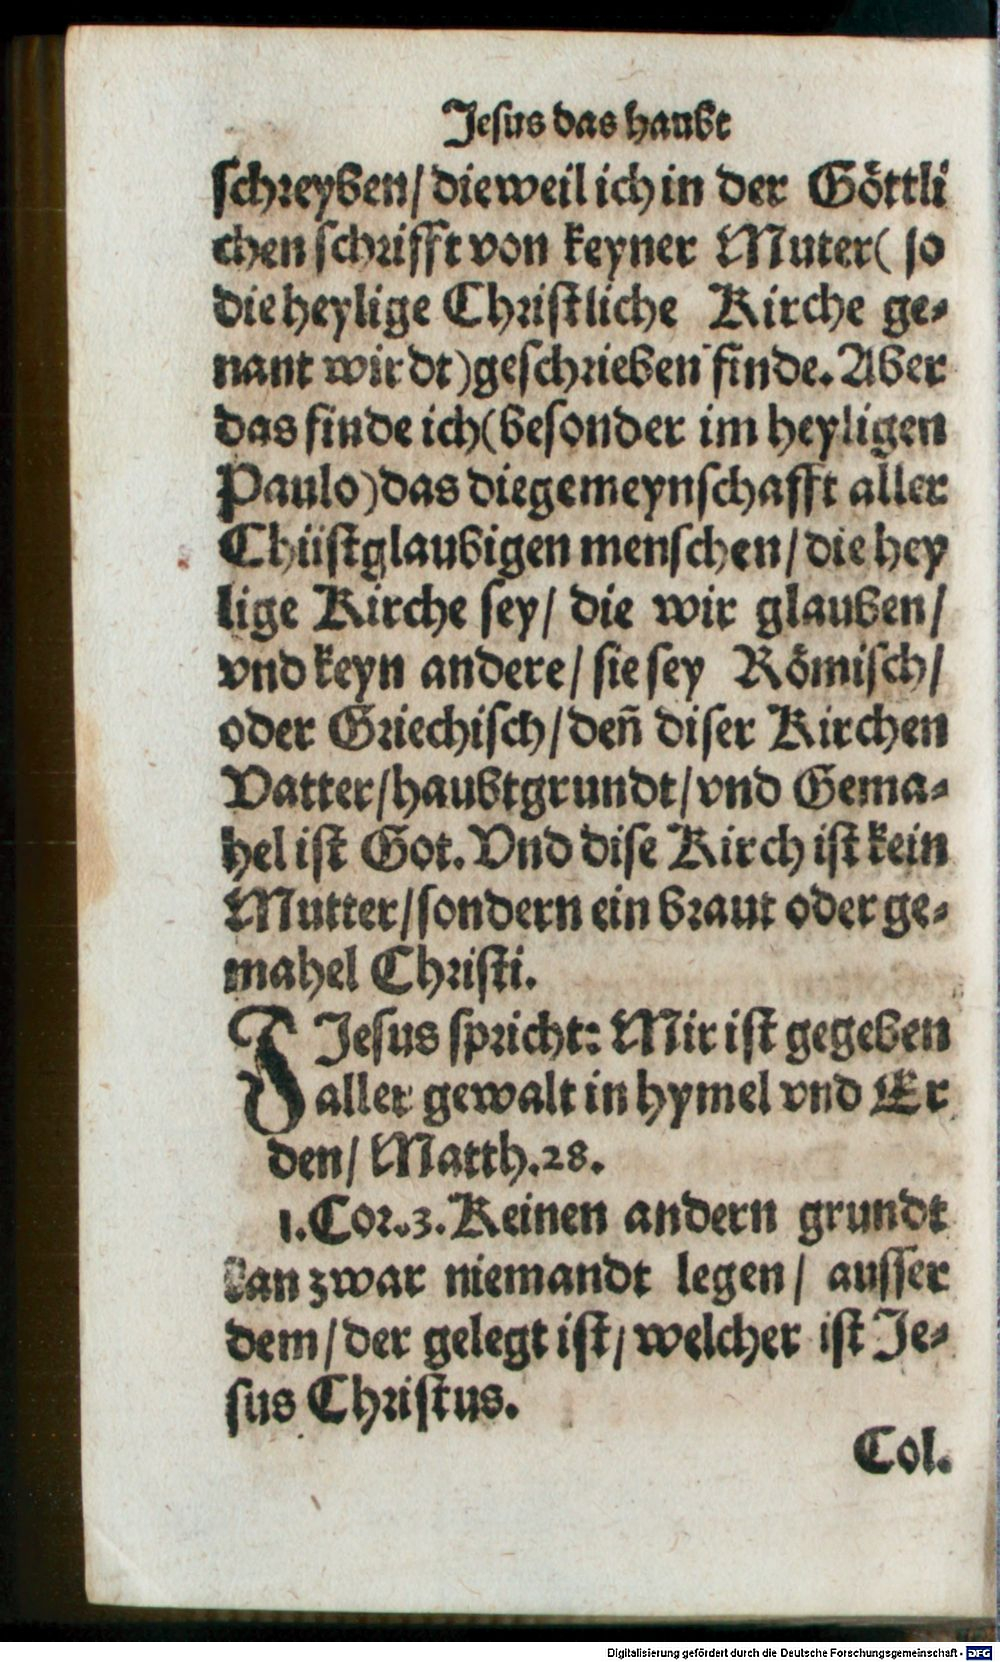 Jesus das haubt
schreyben/ dieweil ich in der Göttli
chen schrifft von keyner Muter( so
die heylige Christliche Kirche ge-
nant wirdt) geschrieben finde. Aber
das finde ich (besonder im heyligen
Paulo) das die gemeynschafft aller
Christglaubigen menschen/ die hey
lige Kirche sey/ die wir glauben/
vnd keyn andere/ sie sey Römisch/
oder Griechisch/ deñ diser Kirchen
Vatter/ haubtgrundt/ vnd Gema-
hel ist Got. Vnd dise Kirch ist kein
Mutter/ sondern ein braut oder ge-
mahel Christi.
J Jesus spricht: Mir ist gegeben
aller gewalt in hymel vnd Er
den/ Matth.28.
1.Cor.3. Keinen andern grundt
kan zwar niemandt legen/ ausser
dem/ der gelegt ist/ welcher ist Je-
sus Christus.
Col.
Digitalisierung gefördert durch die Deutsche Forschungsgemeinschaft - DFG